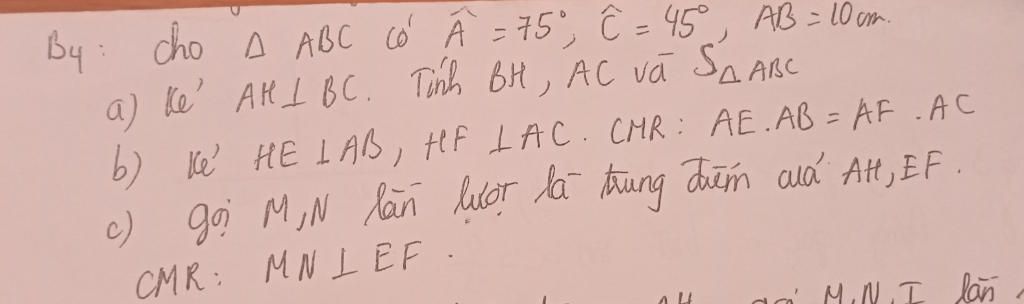 B4: cho Δ ABC có Â = 75°, Ĉ = 45°, AB = 10 cm.
a) Kẻ AH ⊥ BC. Tính BH, AC và S△ABC
b) Kẻ HE ⊥ AB, HF ⊥ AC. CMR: AE.AB = AF.AC
c) gọi M,N lần lượt là trung điểm của AH, EF.
CMR: MN ⊥ EF.
AH gọi M,N,I lần